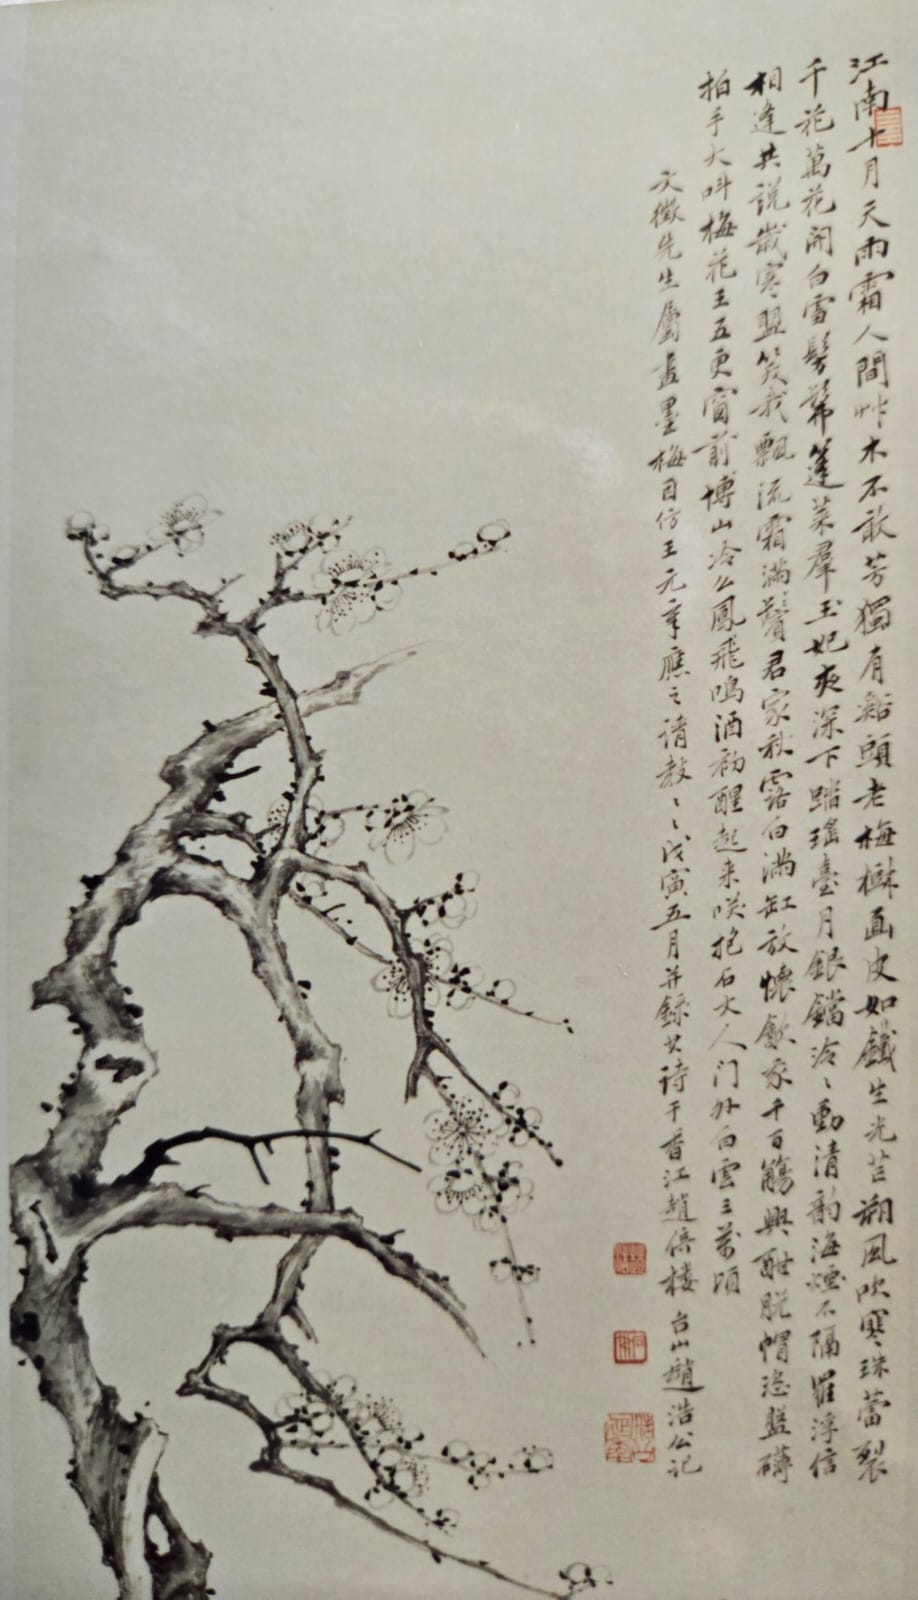 江南十月天雨霜人間艸木不敢芳獨有谿頭老梅樹面皮如鐵生光芒朔風吹寒珠蕾裂
千花萬花開白雪髣髴蓬萊羣玉妃夜深下踏瑤臺月銀鐺泠〻動清韵海煙不隔羅浮信
相逢共說歲寒盟笑我飄流霜滿鬢君家秋露白滿缸放懷飲我千百觴興酣脫帽恣盤礴
拍手大叫梅花王五更窗前博山冷么鳳飛鳴酒初醒起來咲抱石丈人門外白雲三萬頃
文徵先生屬畫墨梅因仿王元章應之請教〻戊寅五月并錄其詩于香江趙倚樓
台山趙浩公記